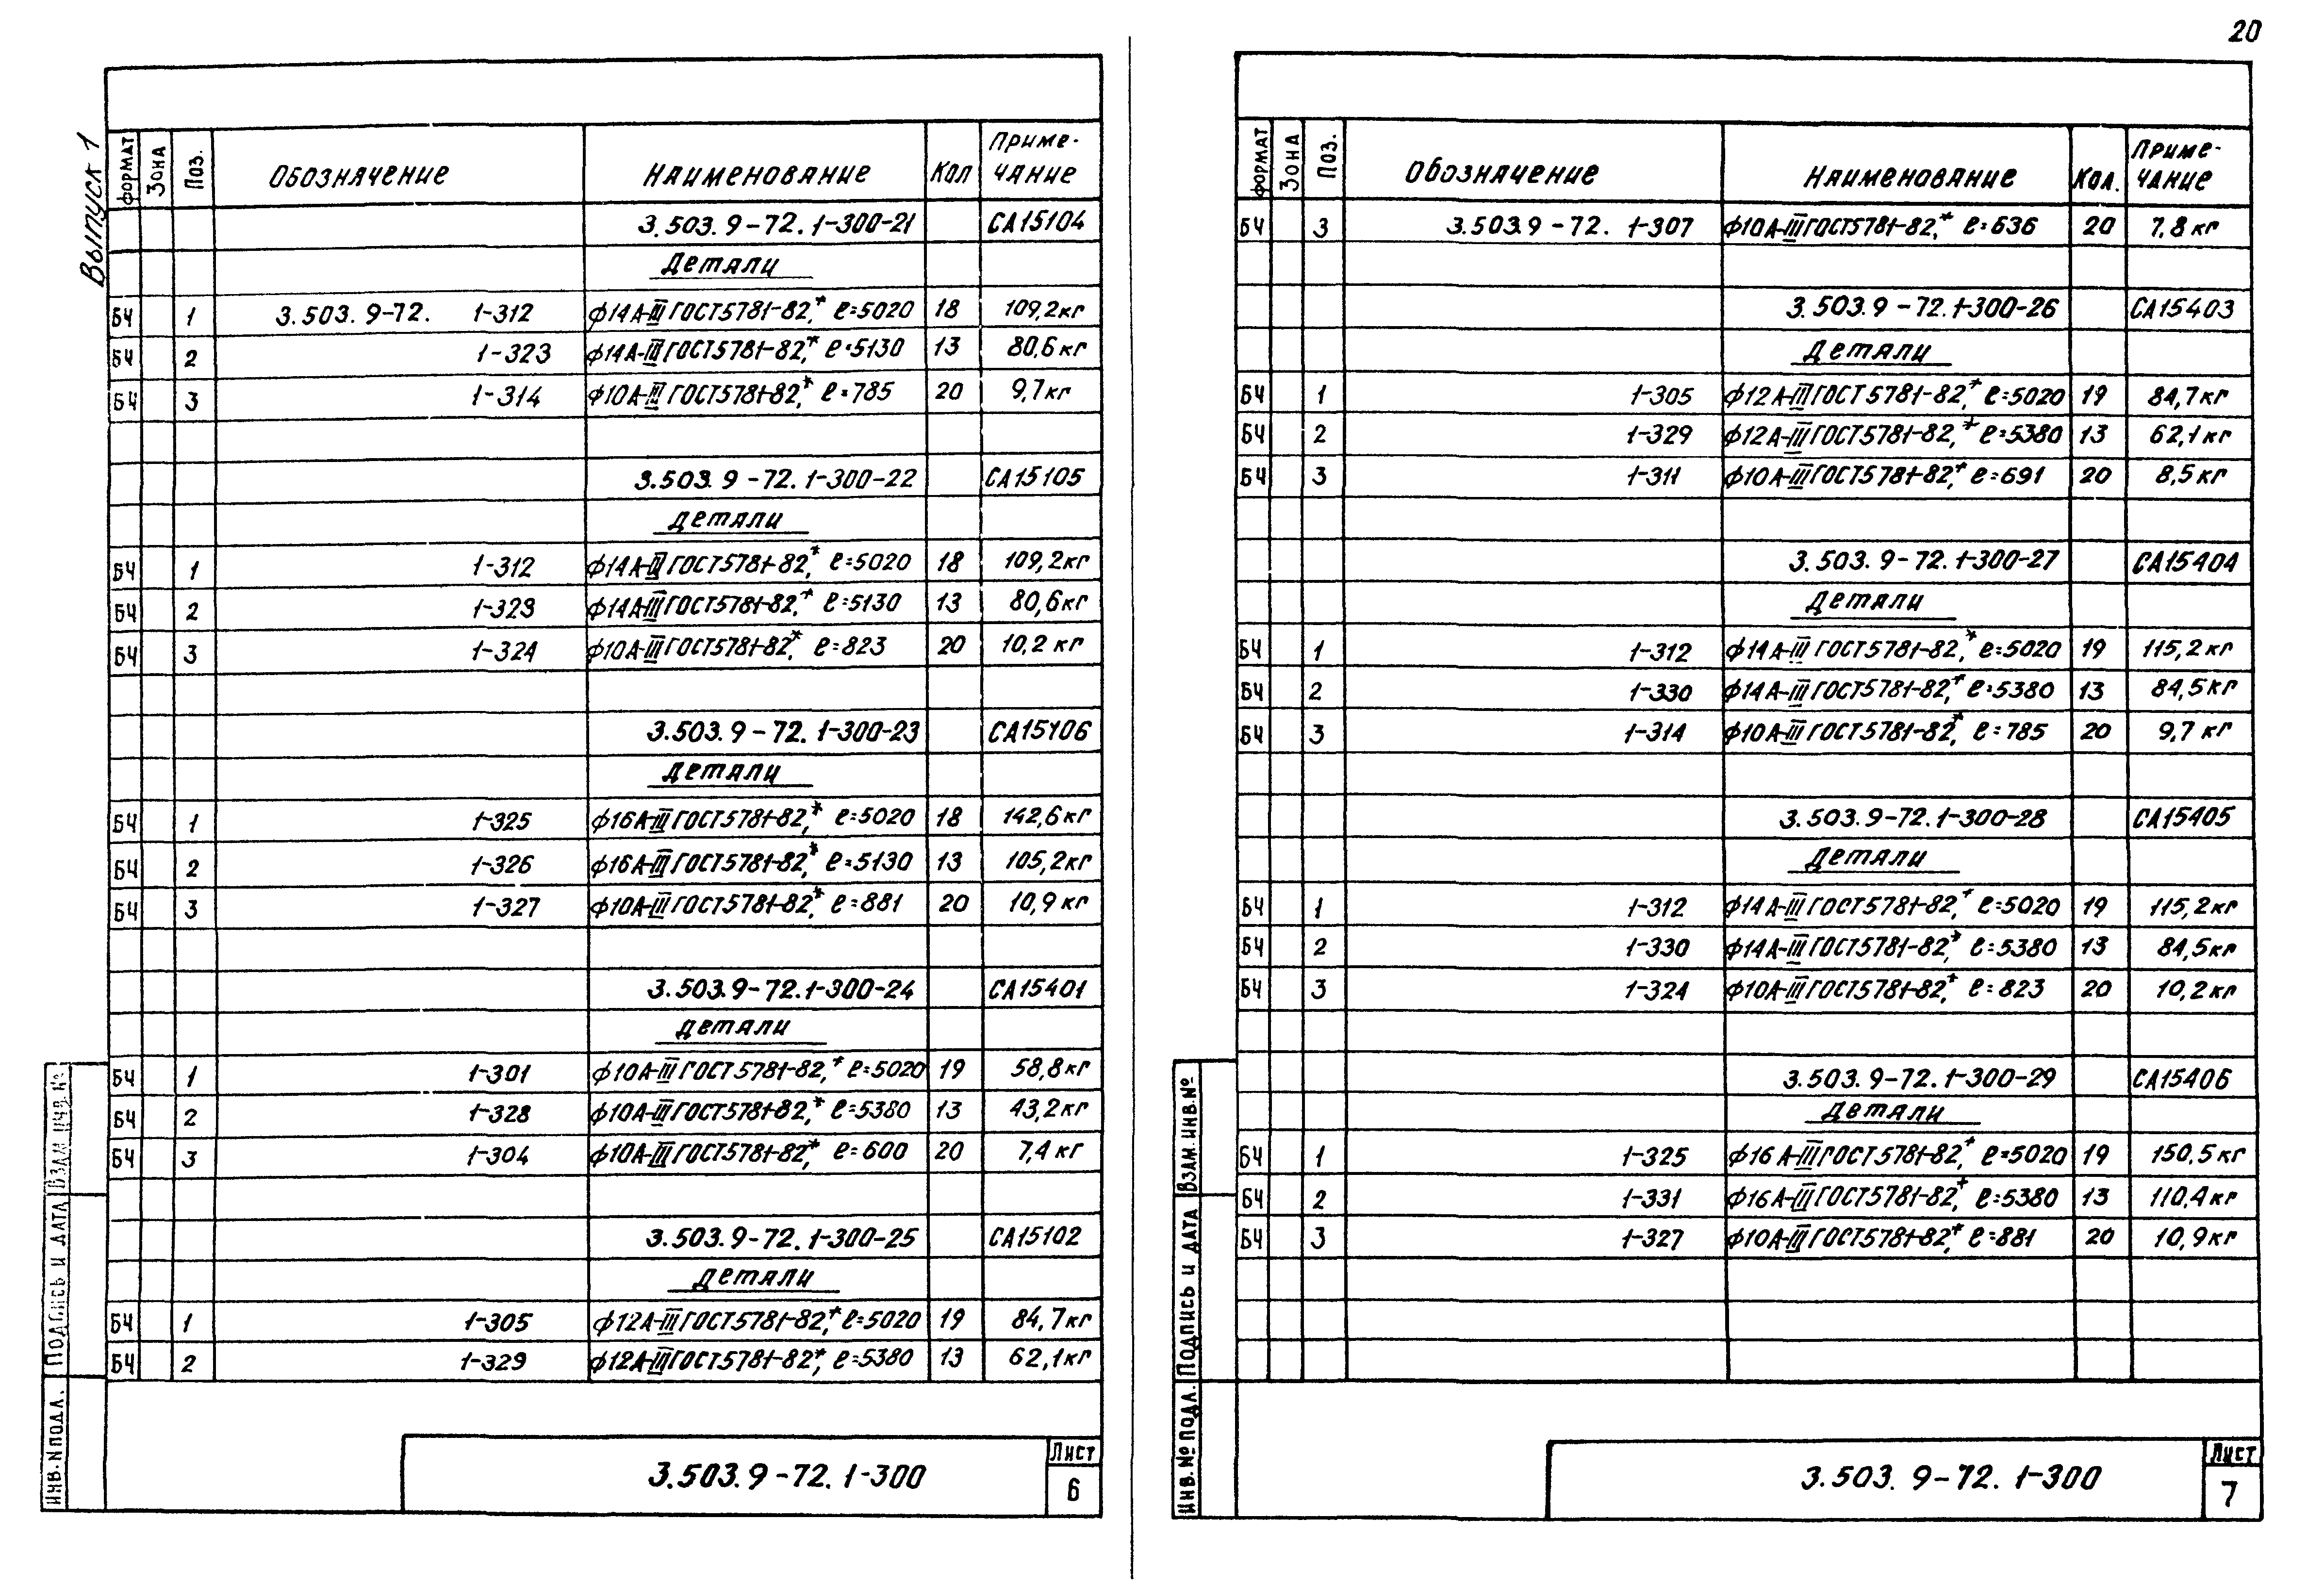 20
Выпуск 1
ФОРМАТ Зона Поз. Обозначение Наименование Кол Приме-чание
3.503.9-72.1-300-21 СА15104
Детали
БЧ 1 3.503.9-72. 1-312 ф14А-III ГОСТ5781-82,* ℓ=5020 18 109,2кг
БЧ 2 1-323 ф14А-III ГОСТ5781-82,* ℓ=5130 13 80,6кг
БЧ 3 1-314 ф10А-III ГОСТ5781-82,* ℓ=785 20 9,7кг
3.503.9-72.1-300-22 СА15105
Детали
БЧ 1 1-312 ф14А-III ГОСТ5781-82,* ℓ=5020 18 109,2кг
БЧ 2 1-323 ф14А-III ГОСТ5781-82,* ℓ=5130 13 80,6кг
БЧ 3 1-324 ф10А-III ГОСТ5781-82,* ℓ=823 20 10,2 кг
3.503.9-72.1-300-23 СА15106
Детали
БЧ 1 1-325 ф16А-III ГОСТ5781-82,* ℓ=5020 18 142,6кг
БЧ 2 1-326 ф16А-III ГОСТ5781-82,* ℓ=5130 13 105,2кг
БЧ 3 1-327 ф10А-III ГОСТ5781-82,* ℓ=881 20 10,9 кг
3.503.9-72.1-300-24 СА15401
Детали
БЧ 1 1-301 ф10А-III ГОСТ5781-82,* ℓ=5020 19 58,8кг
БЧ 2 1-328 ф10А-III ГОСТ5781-82,* ℓ=5380 13 43,2кг
БЧ 3 1-304 ф10А-III ГОСТ5781-82,* ℓ=600 20 7,4 кг
3.503.9-72.1-300-25 СА15102
Детали
БЧ 1 1-305 ф12А-III ГОСТ5781-82,* ℓ=5020 19 84,7кг
БЧ 2 1-329 ф12А-III ГОСТ5781-82,* ℓ=5380 13 62,1кг
Инв.№подл. Подпись и дата Взам.инв.№
3.503.9-72.1-300
Лист
6
ФОРМАТ Зона Поз. Обозначение Наименование Кол. Приме-чание
БЧ 3 3.503.9-72. 1-307 ф10А-III ГОСТ5781-82,* ℓ=636 20 7,8 кг
3.503.9-72.1-300-26 СА15403
Детали
БЧ 1 1-305 ф12А-III ГОСТ5781-82,* ℓ=5020 19 84,7кг
БЧ 2 1-329 ф12А-III ГОСТ5781-82,* ℓ=5380 13 62,1кг
БЧ 3 1-311 ф10А-III ГОСТ5781-82,* ℓ=691 20 8,5 кг
3.503.9-72.1-300-27 СА15404
Детали
БЧ 1 1-312 ф14А-III ГОСТ5781-82,* ℓ=5020 19 115,2кг
БЧ 2 1-330 ф14А-III ГОСТ5781-82,* ℓ=5380 13 84,5кг
БЧ 3 1-314 ф10А-III ГОСТ5781-82,* ℓ=785 20 9,7 кг
3.503.9-72.1-300-28 СА15405
Детали
БЧ 1 1-312 ф14А-III ГОСТ5781-82,* ℓ=5020 19 115,2кг
БЧ 2 1-330 ф14А-III ГОСТ5781-82,* ℓ=5380 13 84,5кг
БЧ 3 1-324 ф10А-III ГОСТ5781-82,* ℓ=823 20 10,2кг
3.503.9-72.1-300-29 СА15406
Детали
БЧ 1 1-325 ф16А-III ГОСТ5781-82,* ℓ=5020 19 150,5кг
БЧ 2 1-331 ф16А-III ГОСТ5781-82,* ℓ=5380 13 110,4кг
БЧ 3 1-327 ф10А-III ГОСТ5781-82,* ℓ=881 20 10,9кг
Инв.№подл. Подпись и дата Взам.инв.№
3.503.9-72.1-300
Лист
7